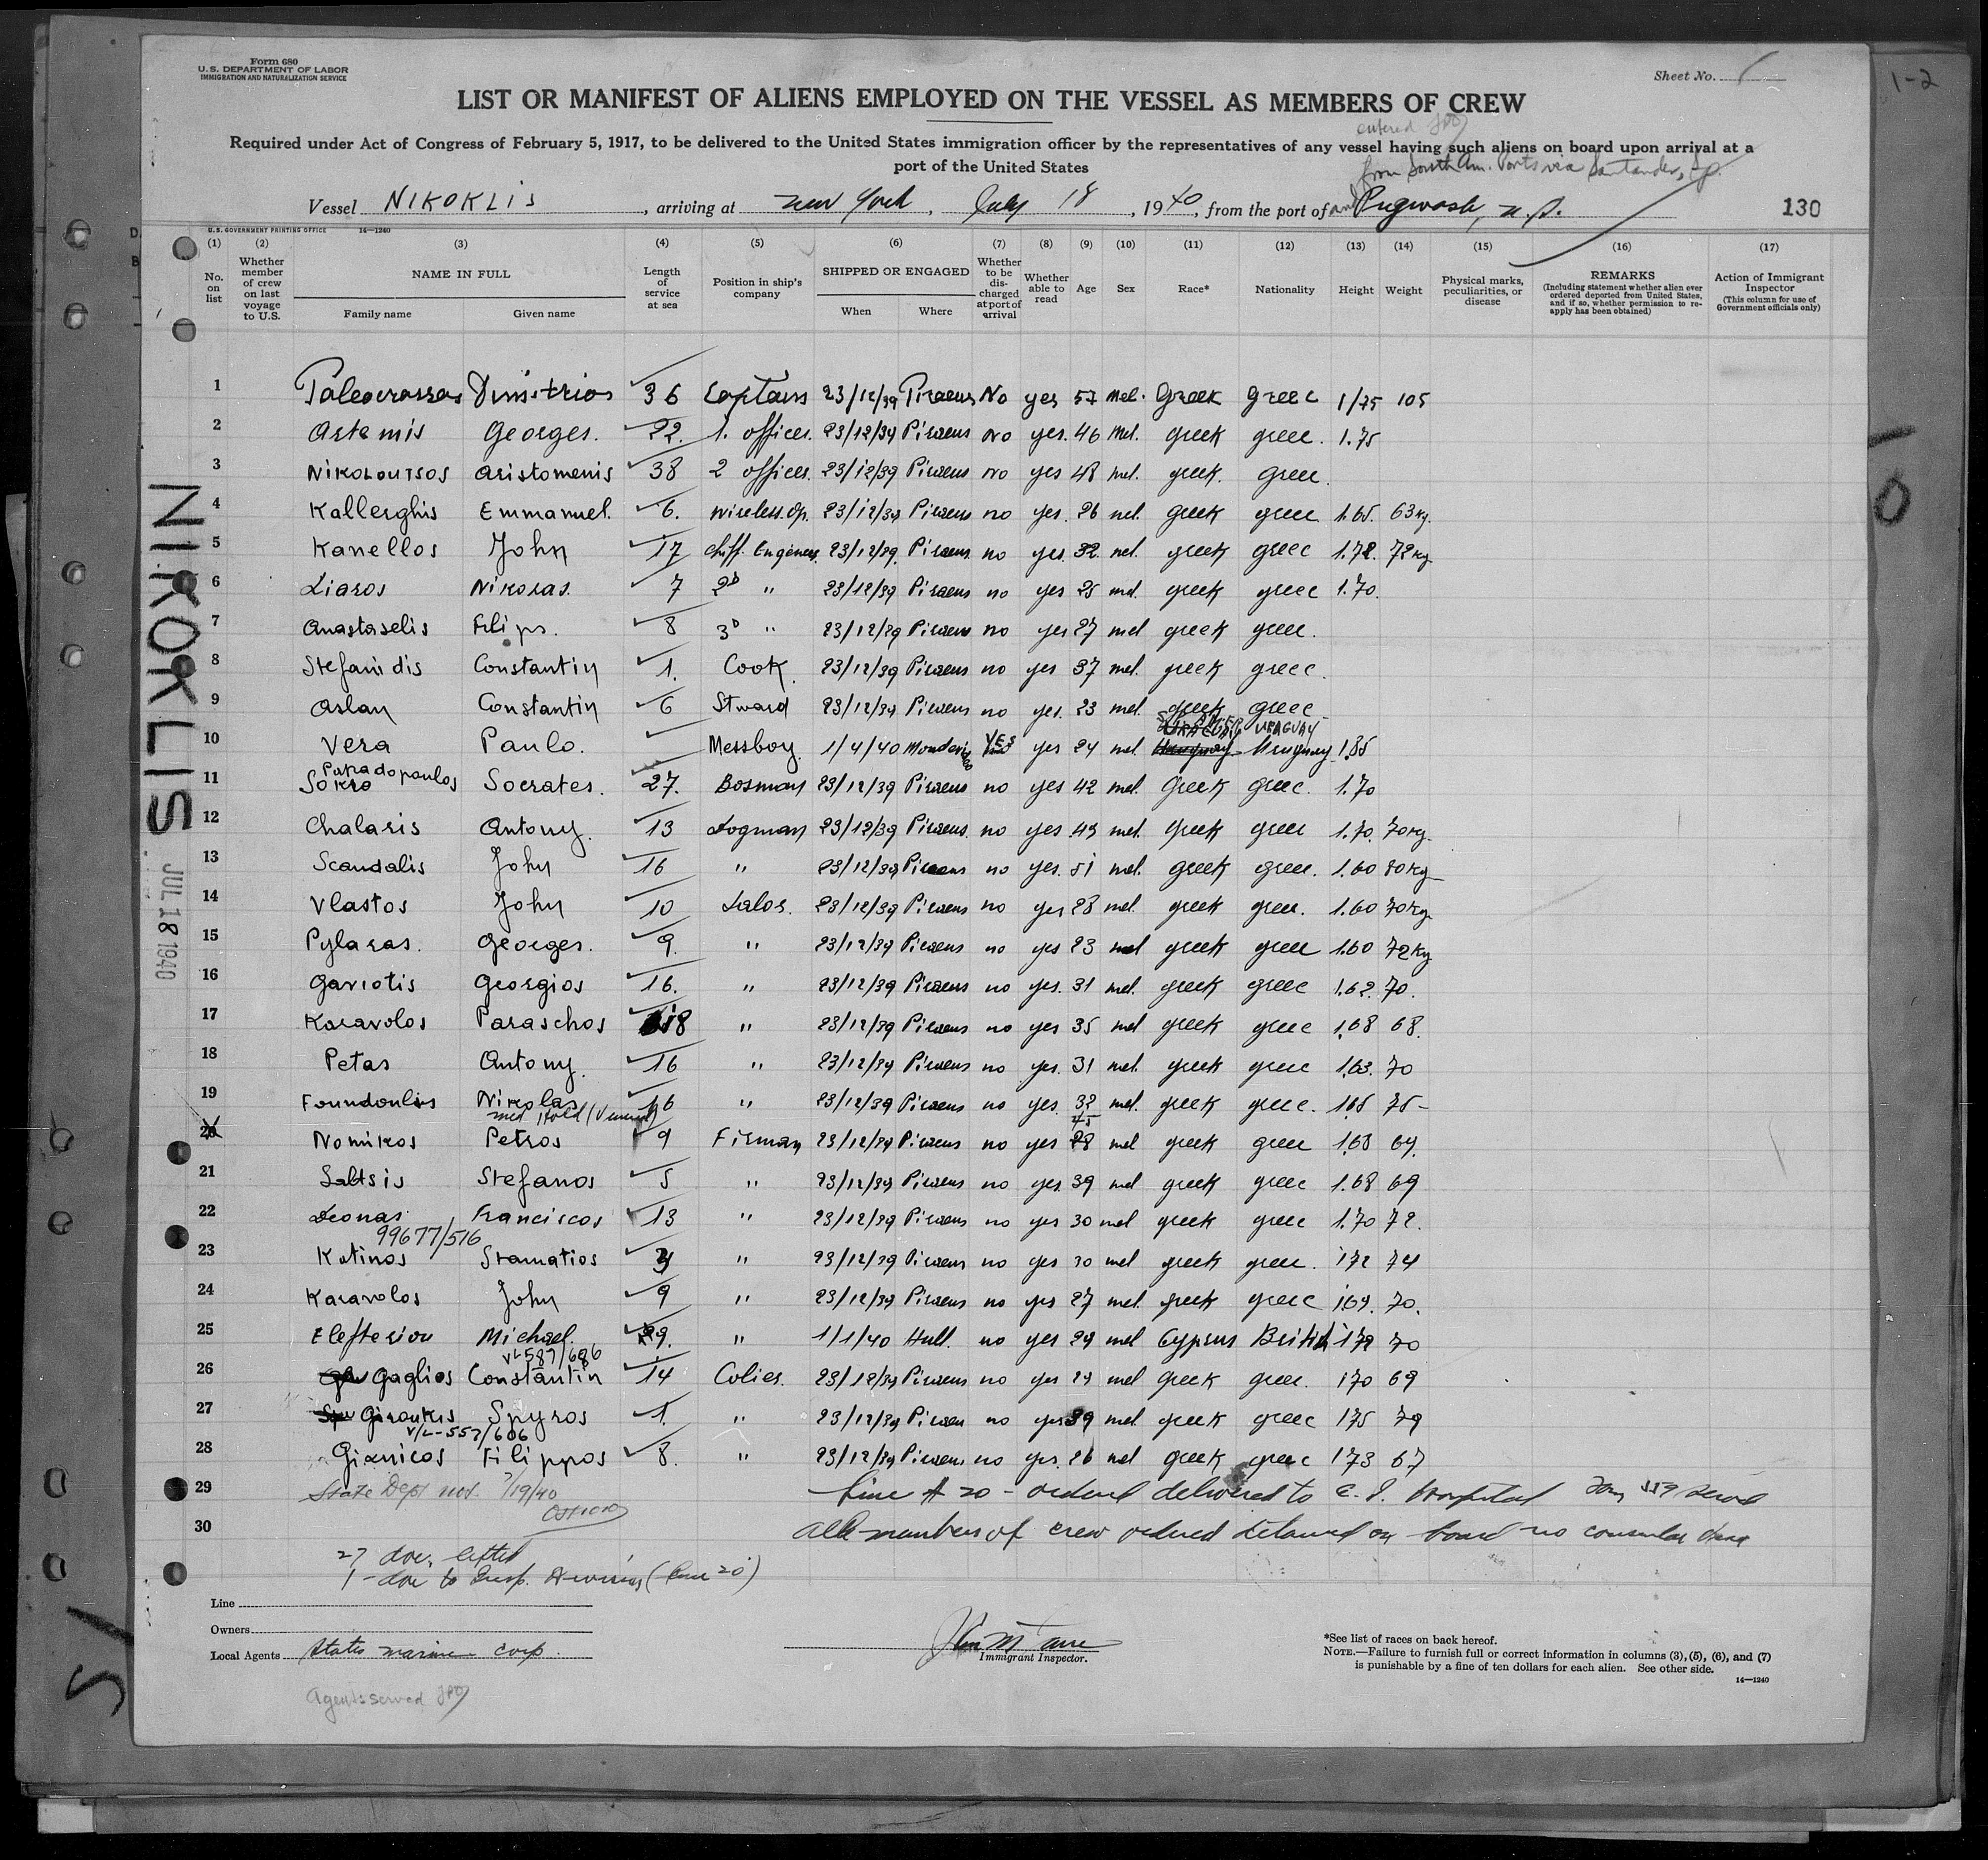 Form 680
U.S. DEPARTMENT OF LABOR
IMMIGRATION AND NATURALIZATION SERVICE
Sheet No.
1-2
LIST OR MANIFEST OF ALIENS EMPLOYED ON THE VESSEL AS MEMBERS OF CREW
entered
Required under Act of Congress of February 5, 1917, to be delivered to the United States immigration officer by the representatives of any vessel having such aliens on board upon arrival at a
port of the United States
from South Am. Ports via Santander, Sp.
Vessel NIKOKLIS, arriving at New York, July 18, 1940, from the port of and Pugwash, N.S.
130
U.S. GOVERNMENT PRINTING OFFICE 14—1240
(1) (2) (3) (4) (5) (6) (7) (8) (9) (10) (11) (12) (13) (14) (15) (16) (17)
No. on list
Whether member of crew on last voyage to U.S.
NAME IN FULL
Family name Given name
Length of service at sea
Position in ship's company
SHIPPED OR ENGAGED
When Where
Whether to be discharged at port of arrival
Whether able to read
Age
Sex
Race*
Nationality
Height
Weight
Physical marks, peculiarities, or disease
REMARKS
(Including statement whether alien ever ordered deported from United States, and if so, whether permission to reapply has been obtained)
Action of Immigrant Inspector
(This column for use of Government officials only)
1 Paleocrassas Dimitrios 36 Captain 23/12/39 Piraeus No yes 57 mel. Greek greec 1/75 105
2 Artemis Georges. 22. 1. officer. 23/12/39 Piraeus no yes. 46 mel. greek greec. 1.75
3 Nikoloutsos Aristomenis 38 2 officer. 23/12/39 Piraeus no yes 48 mel. greek. greec.
4 Kallerghis Emmanuel. 6. Wireless.op. 23/12/39 Piraeus no yes. 26 mel. greek greec 1.65. 63kg.
5 Kanellos John 17 chiff. Engineer. 23/12/39. Piraeus. no yes. 32 mel. greek greec 1.78. 72kg
6 Liaros Nikolas. 7 2D " 23/12/39 Piraeus no yes 25 mel. greek greec 1.70.
7 Anastaselis Filips. 8 3D " 23/12/39 Piraeus no yes 27 mel greek greec.
8 Stefanidis Constantin 1. Cook. 23/12/39 Piraeus no yes 37 mel. greek greec.
9 Aslan Constantin 6 Stward 23/12/39 Piraeus no yes. 23 mel. greek greec
URAGUAY
10 Vera Paulo. Messboy. 1/4/40 YES yes 24 mel Uruguay 1.85
Papadopoulos
11 Sokra Socrates. 27. Bosman 23/12/39 Piraeus no yes 42 mel. Greek greec. 1.70
12 Chalaris Antony. 13 Dogman 23/12/39 Piraeus. no yes. 43 mel. greek greec 1.70. 70kg.
13 Scandalis John 16 " 23/12/39 Piraeus no yes. 51 mel. greek greec. 1.60 80kg
14 Vlastos John 10 Salor. 23/12/39 Piraeus no yes 28 mel. greek greec. 1.60 70kg.
15 Pylaras. Georges. 9. " 23/12/39 Piraeus no yes 23 mel greek greec 1.60 72kg
16 Gaviotis Georgios 16. " 23/12/39 Piraeus no yes. 31 mel. greek greec 1.62. 70.
17 Karavolos Paraschos 18 " 23/12/39 Piraeus no yes 35 mel greek greec 1.68 68.
18 Petas Antony. 16 " 23/12/39 Piraeus no yes. 31 mel. greek greec 1.63. 70
19 Foundoulis Nikolas 16 " 23/12/39 Piraeus no yes. 32 mel. greek greec. 165 75-
med Hold (Venereal)
20 Nomikos Petros 9 Firman 23/12/39 Piraeus no yes 28 mel greek greec 1.68 69.
21 Saltsis Stefanos 5 " 23/12/39 Piraeus no yes. 39 mel greek greec 1.68 69
22 Leonas Franciscos 13 " 23/12/39 Piraeus no yes 30 mel greek greec 1.70 72.
99677/516
23 Kotinos Stamatios " 23/12/39 Piraeus no yes 30 mel greek greec. 172 74
24 Karavolos John 9 " 23/12/39 Piraeus no yes 27 mel. greek greec 169. 70.
25 Elefteriou Michael. 9. " 1/1/40 Hull. no yes 29 mel Cyprus British 172 70
VL587/686
26 Gaglios Constantin 14 Colier. 23/12/39 Piraeus no yes 29 mel greek greec. 170 69
27 Giroukis Spyros 1. " 23/12/39 Piraeus no yes 39 mel. greek greec 175 79
V/L-557/606
28 Gianicos Filippos 8. " 23/12/39 Piraeus no yes. 26 mel greek greec 173 67
29 State Dept not. 7/19/40 Line # 20 - ordered delivered to E. I. Hospital Form 559 served
30 All members of crew ordered detained on board no consular visa
27 doc. lifted
1 - doc to Insp. Division (Line 20)
Line
Owners
Local Agents States Marine Corp.
Agents served
Immigrant Inspector.
*See list of races on back hereof.
NOTE.—Failure to furnish full or correct information in columns (3), (5), (6), and (7)
is punishable by a fine of ten dollars for each alien. See other side.
14—1240
NIKOKLIS
JUL 18 1940